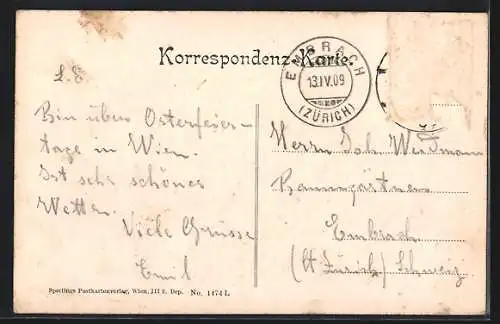 Korrespondenz-Karte.
EMBRACH
13.IV.09
(ZÜRICH)
L. E.
Bin über Osterfeier-
tage in Wien.
Ist sehr schönes
Wetter.
Viele Grüsse
Emil
Herrn Joh. Weidmann
Baumgärtner
Embrach
(Kt. Zürich) Schweiz
Sperlings Postkartenverlag, Wien, III 2. Dep. No. 1174 L.